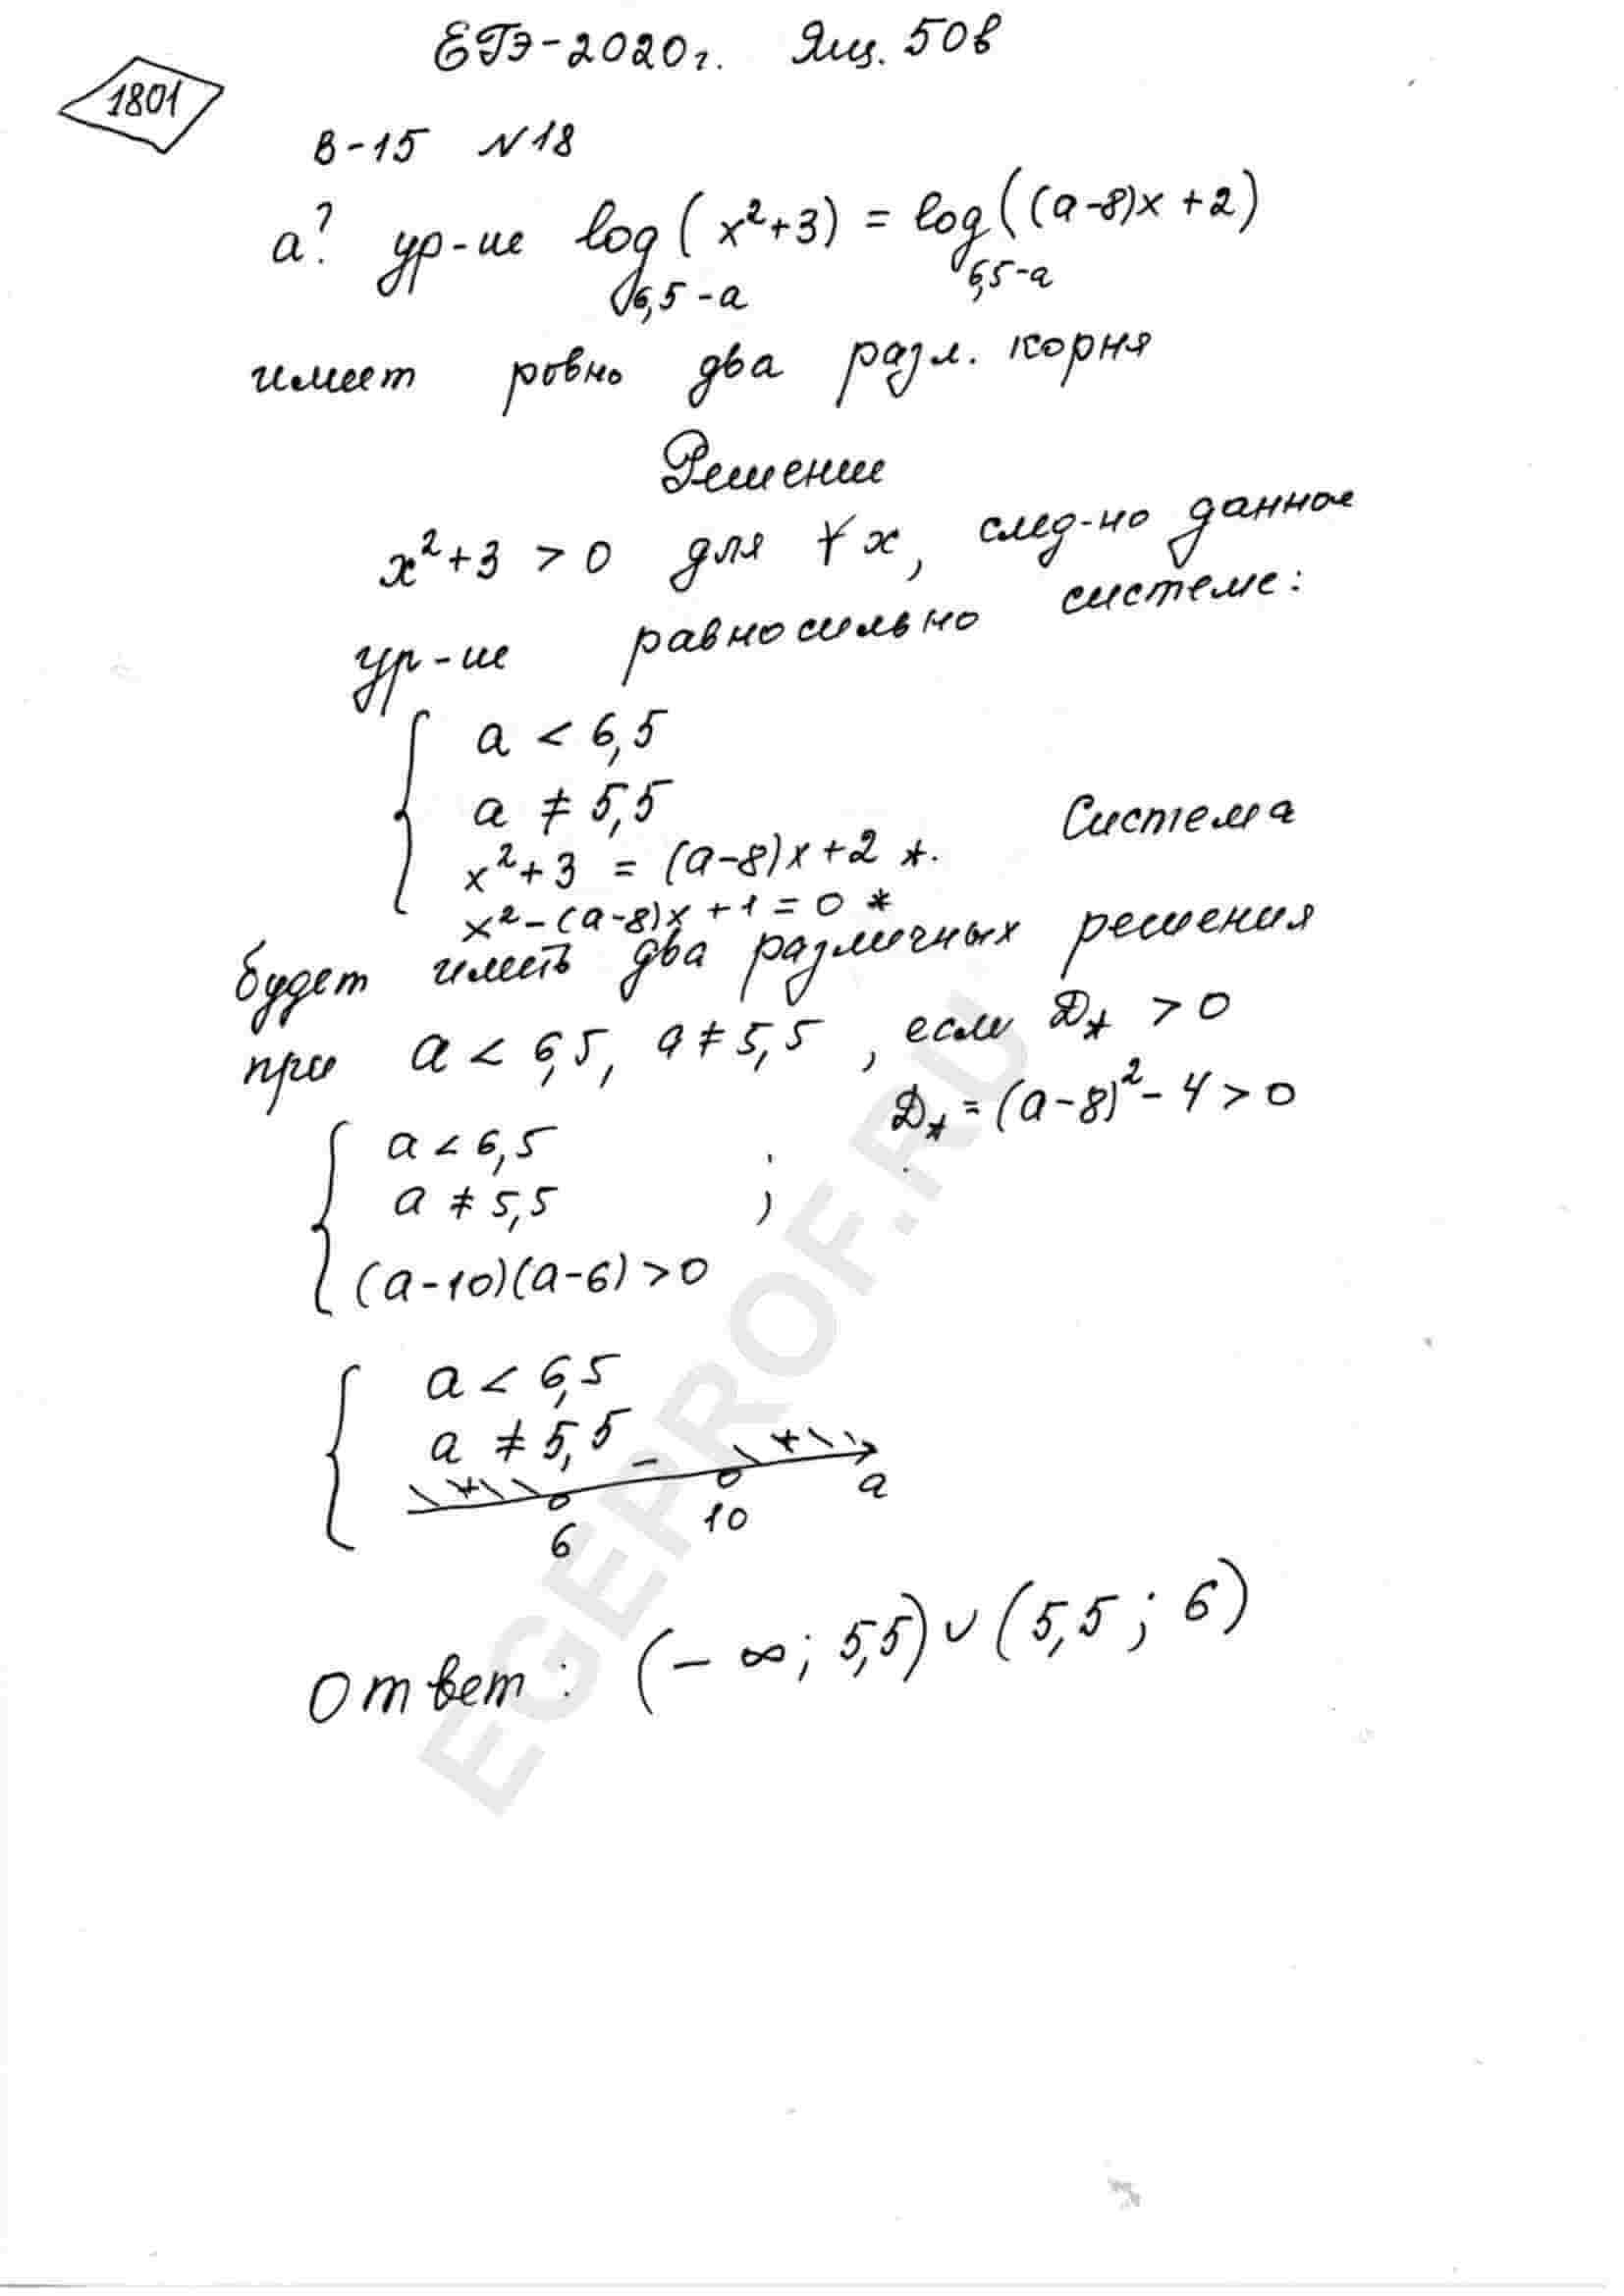 ЕГЭ-2020г. Ящ. 50в
1801
В-15 N18
a? ур-ие log_{6,5-a}(x²+3) = log_{6,5-a}((a-8)x+2)
имеет ровно два разл. корня
Решение
x²+3 > 0 для ∀x, след-но данное
ур-ие равносильно системе:
a < 6,5
a ≠ 5,5
x²+3 = (a-8)x+2 *. Система
x²-(a-8)x+1=0 *
будет иметь два различных решения
при a < 6,5, a ≠ 5,5, если D* > 0
D* = (a-8)²-4>0
a < 6,5
a ≠ 5,5 ;
(a-10)(a-6)>0
a < 6,5
a ≠ 5,5
+ - + a
6 10
Ответ: (-∞; 5,5)∪(5,5; 6)
EGEPROF.RU